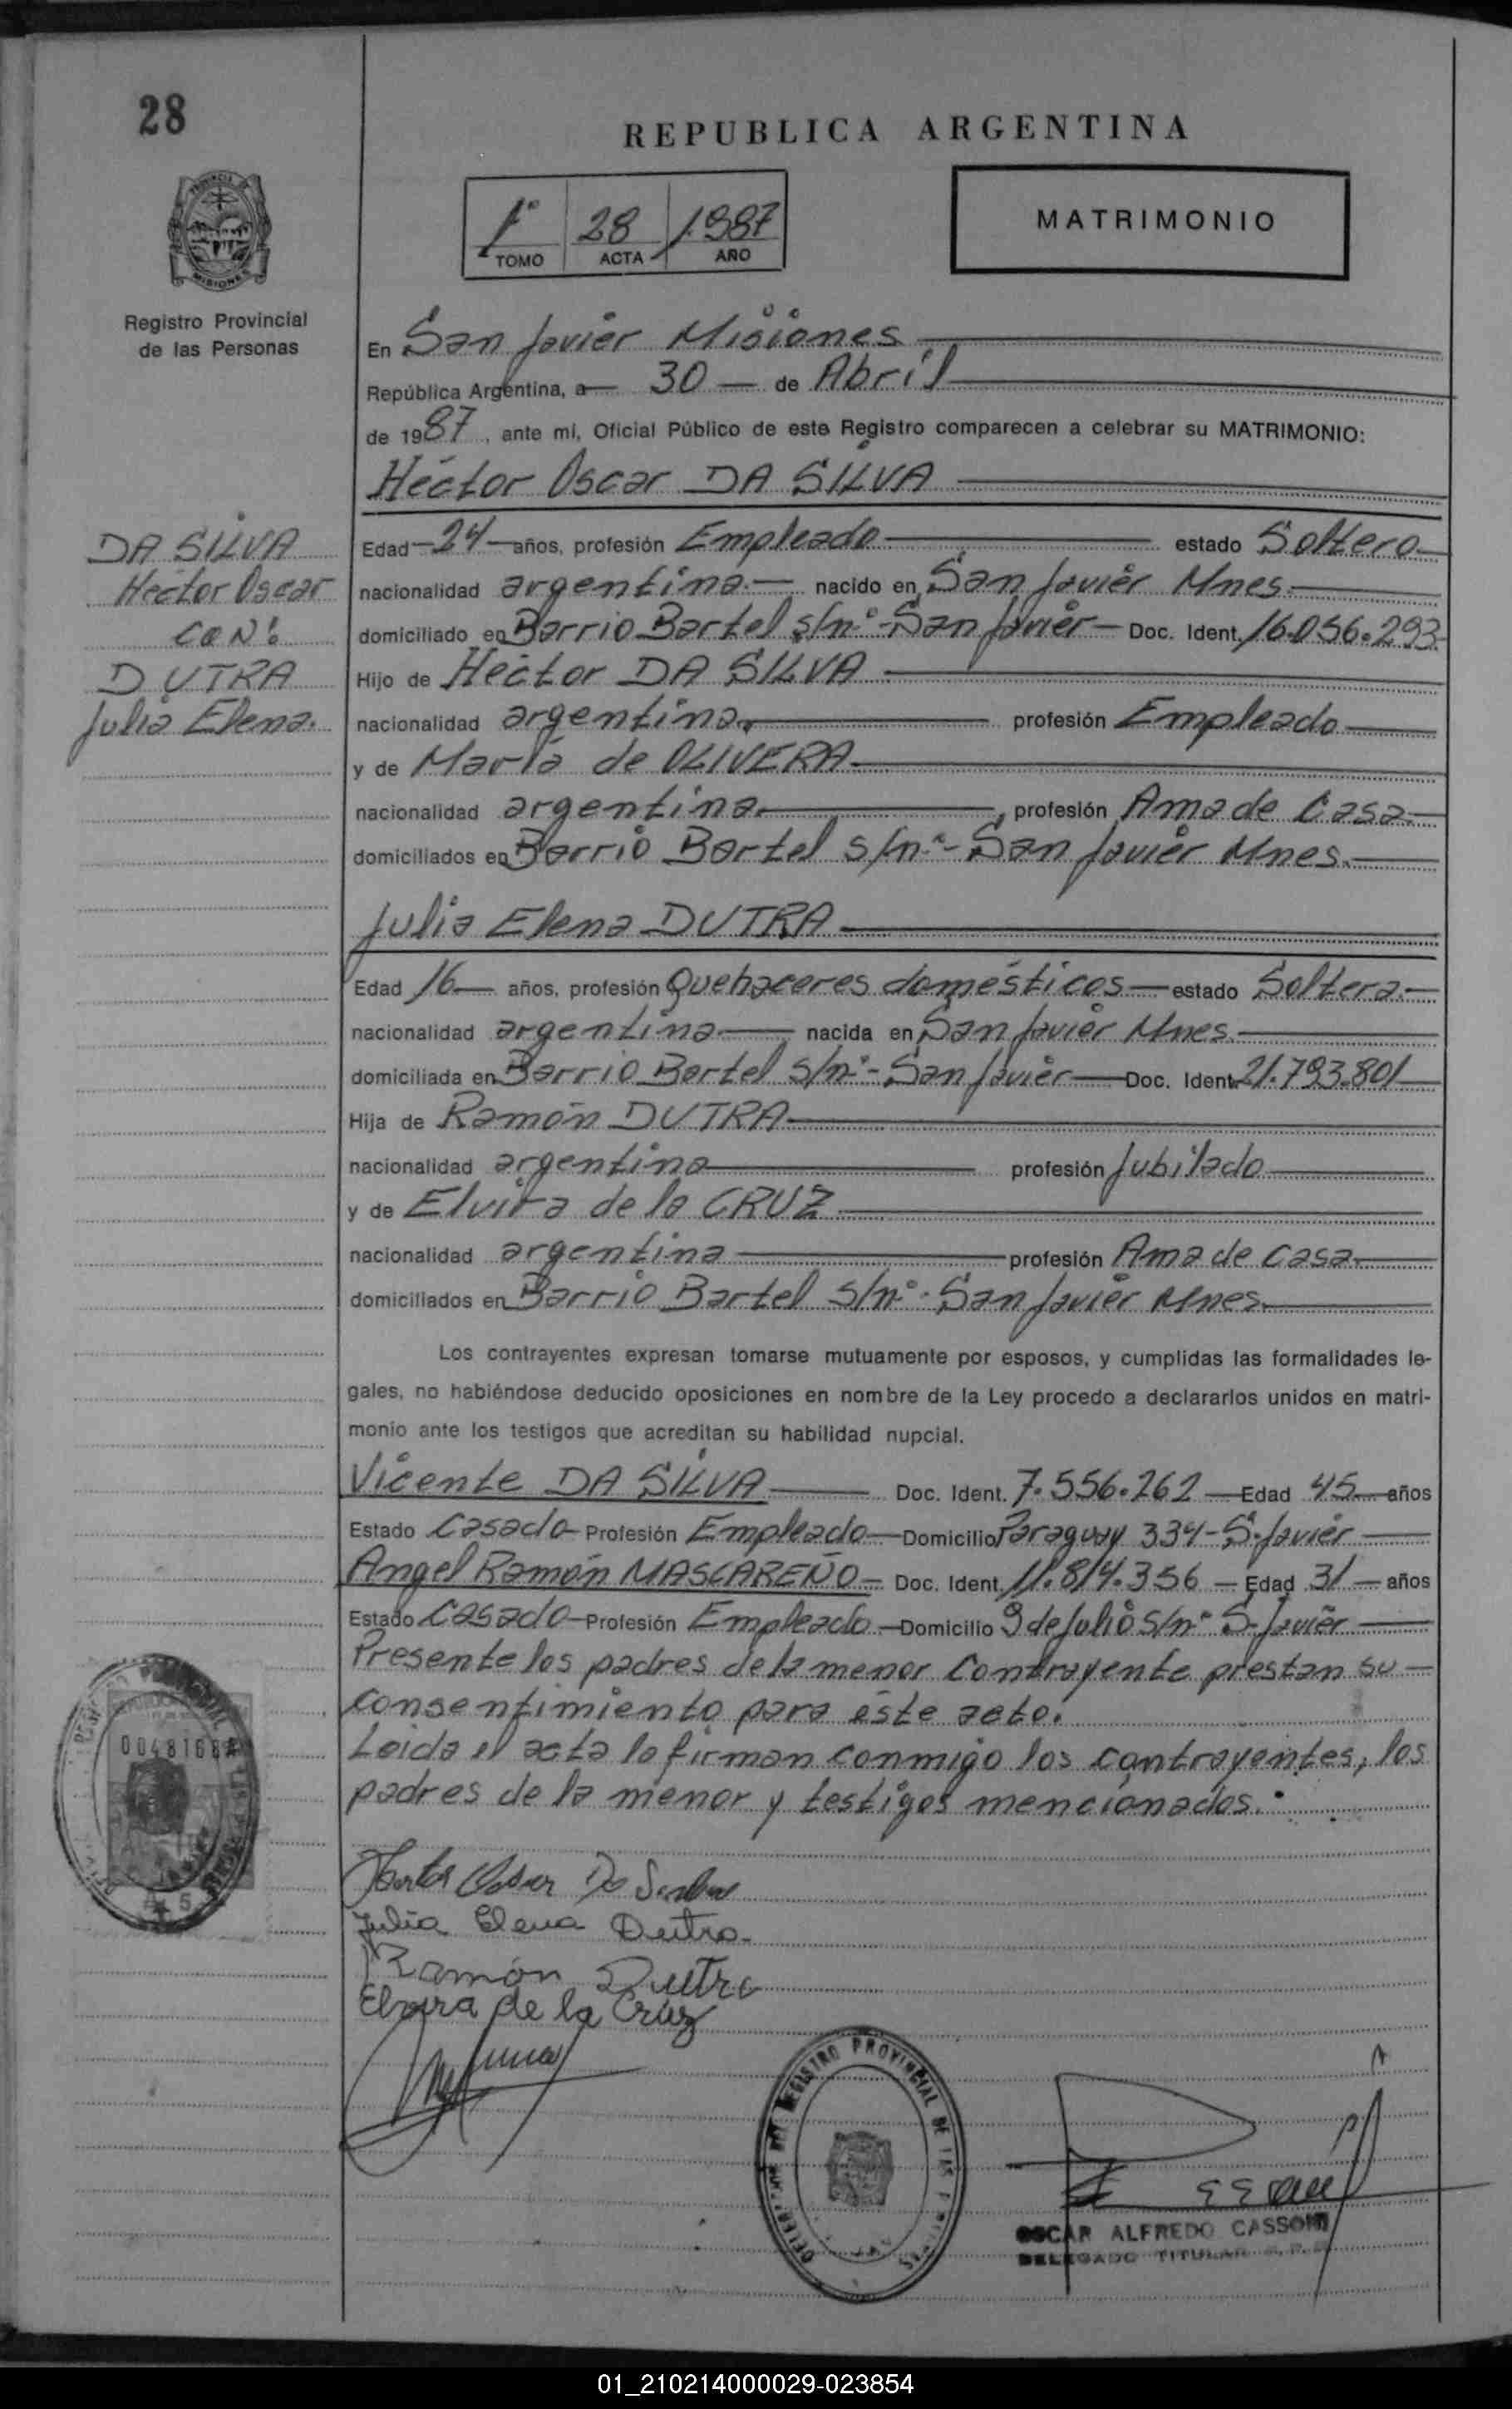 28
REPUBLICA ARGENTINA
1° 28 1987
TOMO ACTA AÑO
MATRIMONIO
Registro Provincial
de las Personas
En San Javier Misiones
República Argentina, a 30 de Abril
de 1987, ante mí, Oficial Público de este Registro comparecen a celebrar su MATRIMONIO:
Héctor Oscar DA SILVA
DA SILVA
Héctor Oscar
CON:
DUTRA
Julia Elena.
Edad 24 años, profesión Empleado estado Soltero
nacionalidad argentina. nacido en San Javier Mnes.
domiciliado en Barrio Bartel s/n° - San Javier Doc. Ident. 16.056.293
Hijo de Héctor DA SILVA
nacionalidad argentina profesión Empleado
y de María de OLIVERA
nacionalidad argentina profesión Ama de Casa
domiciliados en Barrio Bartel s/n° - San Javier Mnes.
Julia Elena DUTRA
Edad 16 años, profesión Quehaceres domésticos estado Soltera.
nacionalidad argentina nacida en San Javier Mnes.
domiciliada en Barrio Bartel s/n° - San Javier Doc. Ident. 21.793.801
Hija de Ramón DUTRA
nacionalidad argentina profesión Jubilado
y de Elvira de la CRUZ
nacionalidad argentina profesión Ama de casa
domiciliados en Barrio Bartel s/n° - San Javier Mnes.
Los contrayentes expresan tomarse mutuamente por esposos, y cumplidas las formalidades le-
gales, no habiéndose deducido oposiciones en nombre de la Ley procedo a declararlos unidos en matri-
monio ante los testigos que acreditan su habilidad nupcial.
Vicente DA SILVA Doc. Ident. 7.556.262 Edad 45 años
Estado Casado Profesión Empleado Domicilio Paraguay 334 - S. Javier
Angel Ramón MASCAREÑO Doc. Ident. 11.814.356 Edad 31 años
Estado Casado Profesión Empleado Domicilio 9 de Julio s/n° S. Javier
Presente los padres de la menor Contrayente prestan su
consentimiento para éste acto.
Leida el acta la firman conmigo los contrayentes, los
padres de la menor y testigos mencionados.
Oscar Da
Julia Elena Dutra
Ramón Dutra
Elvira de la Cruz
REGISTRO PROVINCIAL DE LAS
OSCAR ALFREDO CASSONI
DELEGADO TITULAR
01_210214000029-023854